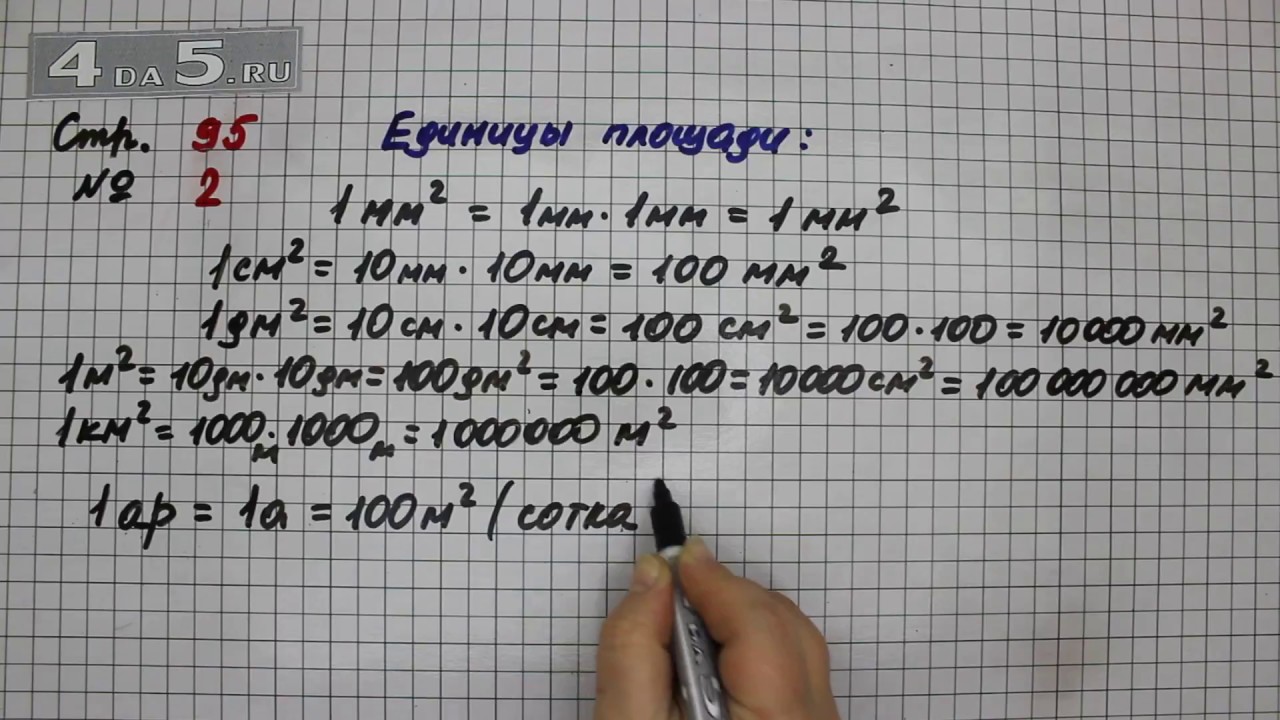 4 DA 5.RU
Стр. 95
№ 2
Единицы площади:
1 мм² = 1мм · 1мм = 1 мм²
1см² = 10мм · 10мм = 100 мм²
1дм² = 10см · 10см = 100 см² = 100 · 100 = 10000 мм²
1м² = 10дм · 10дм = 100дм² = 100 · 100 = 10000см² = 100 000 000 мм²
1км² = 1000м · 1000м = 1000000 м²
1ар = 1а = 100м² (сотка